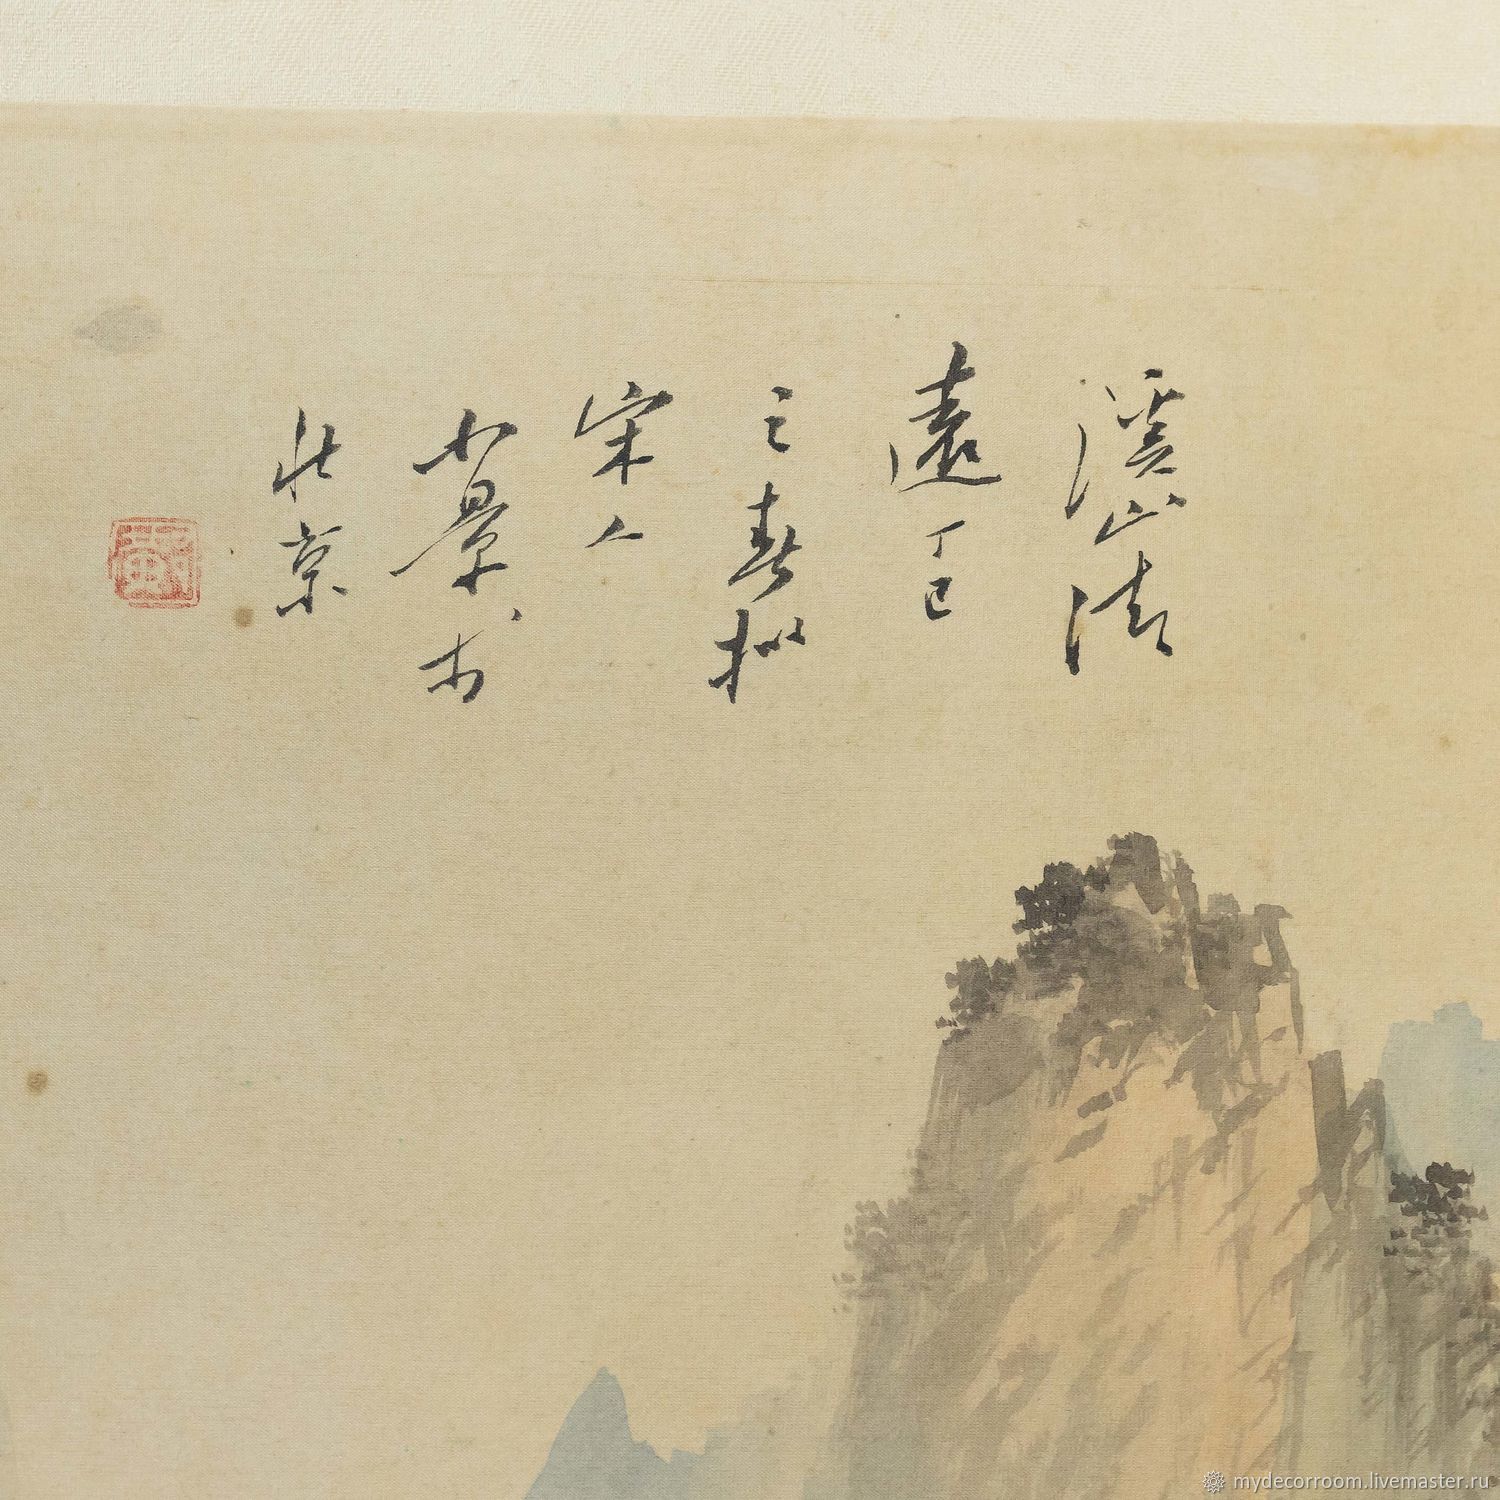 溪山清
遠丁巳
之春拟
宋人
小景于
北京
mydecorroom.livemaster.ru